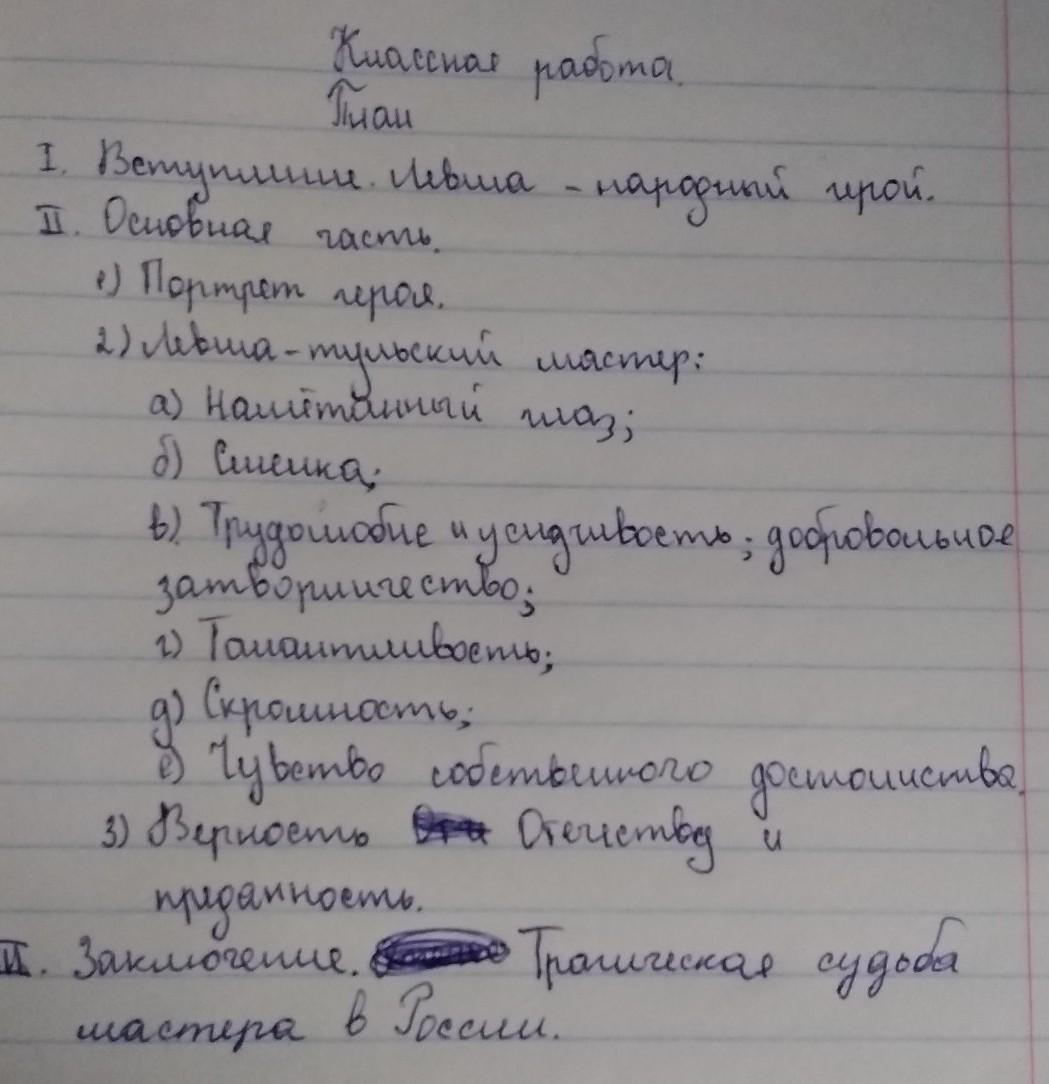 Классная работа.
План
I. Вступление. Левша - народный герой.
II. Основная часть.
1) Портрет героя.
2) Левша - тульский мастер:
а) Намётанный глаз;
б) Смелка;
в) Трудолюбие и усидчивость; добровольное
затворничество;
г) Талантливость;
д) Скромность;
е) Чувство собственного достоинства.
3) Верность Отечеству и
преданность.
III. Заключение. Трагическая судьба
мастера в России.